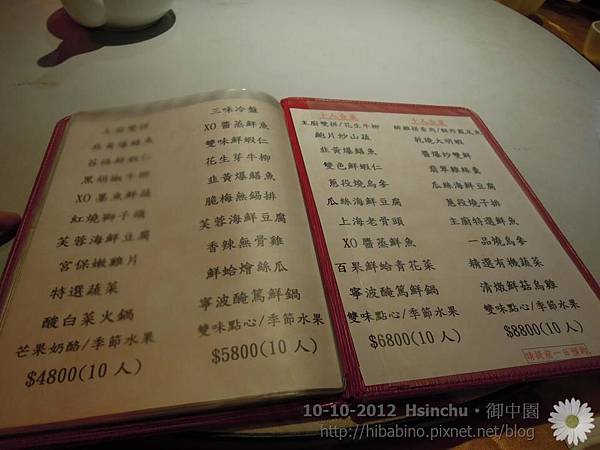 主廚雙拼
韭黃爆鱔魚
苔條鮮蝦仁
黑胡椒牛柳
XO 墨魚鮮蔬
紅燒獅子頭
芙蓉海鮮豆腐
宮保嫩雞片
特選蔬菜
酸白菜火鍋
芒果奶酪/季節水果
$4800(10 人)
三味冷盤
XO 醬蒸鮮魚
雙味鮮蝦仁
花生芽牛柳
韭黃爆鱔魚
脆梅無錫排
芙蓉海鮮豆腐
香辣無骨雞
鮮蛤燴絲瓜
寧波醃篤鮮鍋
雙味點心/季節水果
$5800(10 人)
十人合菜
主廚雙拼/花生牛柳
鮑片炒山蔬
韭黃爆鱔魚
雙色鮮蝦仁
蔥段燒烏參
瓜絲海鮮豆腐
上海老骨頭
XO 醬蒸鮮魚
百果鮮蛤青花菜
寧波醃篤鮮鍋
雙味點心/季節水果
$6800(10 人)
十人合菜
乾燒大明蝦
醬爆炒雙鮮
翡翠雞絲羹
瓜絲海鮮豆腐
蔥段燒子排
主廚特選鮮魚
一品燒烏參
精選有機蔬菜
清燉鮮菇烏雞
雙味點心/季節水果
$8800(10 人)
10-10-2012 Hsinchu・御中園
http://hibabino.pixnet.net/blog